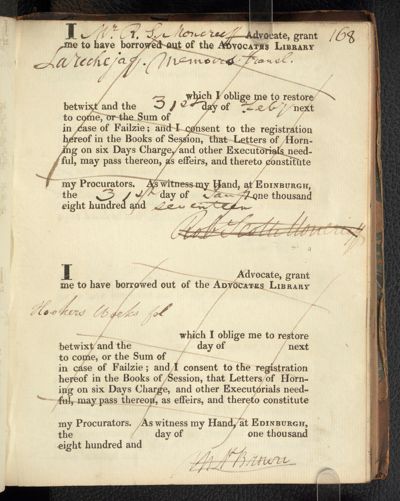 168
I Mr R. S. Moncreiff Advocate, grant
me to have borrowed out of the ADVOCATES LIBRARY
Larochejaq. Memoirs transl.
which I oblige me to restore
betwixt and the 31st day of Feby next
to come, or the Sum of
in case of Failzie; and I consent to the registration
hereof in the Books of Session, that Letters of Horn-
ing on six Days Charge, and other Executorials need-
ful, may pass thereon, as effeirs, and thereto constitute
my Procurators. As witness my Hand, at EDINBURGH,
the 31st day of Jany one thousand
eight hundred and seventeen
Robt Scott Moncreiff
I Advocate, grant
me to have borrowed out of the ADVOCATES LIBRARY
Hookers Works fol
which I oblige me to restore
betwixt and the day of next
to come, or the Sum of
in case of Failzie; and I consent to the registration
hereof in the Books of Session, that Letters of Horn-
ing on six Days Charge, and other Executorials need-
ful, may pass thereon, as effeirs, and thereto constitute
my Procurators. As witness my Hand, at EDINBURGH,
the day of one thousand
eight hundred and
Brown